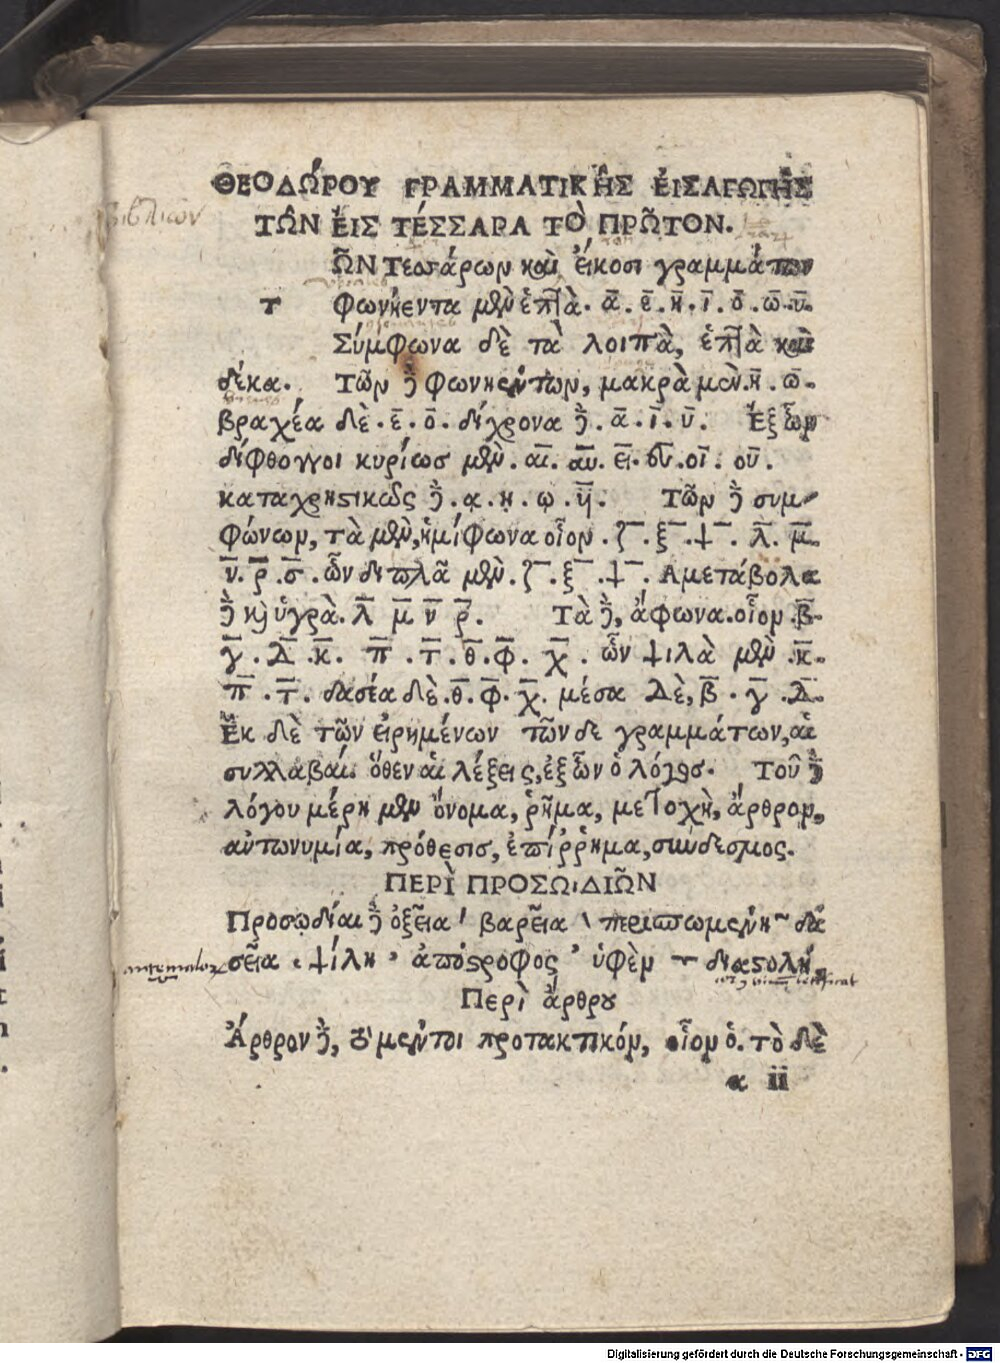 ΘΕΟΔΏΡΟΥ ΓΡΑΜΜΑΤΙΚΗ͂Σ ἘΙΣΑΓΩΓΗ͂Σ
ΤΩ͂Ν ἘΙΣ ΤΈΣΣΑΡΑ ΤῸ ΠΡΩ͂ΤΟΝ.
βιβλιων
Ω͂Ν Τεσσάρων καὶ ἔικοσι γραμμάτων
τ φωνήεντα μὲν ἑπτὰ. α̅. ε̅. η̅. ι̅. ο̅. ω̅. υ̅.
Σύμφωνα δὲ τὰ λοιπὰ, ἑπτὰ καὶ
δέκα. Τῶν δὲ φωνηέντων, μακρὰ μὲν. η̅. ω̅.
βραχέα δὲ. ε̅. ο̅. δίχρονα δὲ. α̅. ι̅. υ̅. Ἐξ ὧν
δίφθογγοι κυρίωσ μὲν. αι̅. αυ̅. ει̅. ευ̅. οι̅. ου̅.
καταχρηϛικῶς δὲ. ᾳ. ῃ. ῳ. υι̅. Τῶν δὲ συμ-
φώνων, τὰ μὲν, ἡμίφωνα οἷον. ζ̅. ξ̅. ψ̅. λ̅. μ̅.
ν̅. ρ̅. σ̅. ὧν διπλᾶ μὲν. ζ̅. ξ̅. ψ̅. Αμετάβολα
δὲ κὶ ὑγρὰ. λ̅ μ̅ ν̅ ρ̅. Τὰ δὲ, ἄφωνα. οἷον. β̅.
γ̅. δ̅. κ̅. π̅. τ̅. θ̅. φ̅. χ̅. ὧν ψιλὰ μὲν. κ̅.
π̅. τ̅. δασέα δὲ. θ̅. φ̅. χ̅. μέσα δὲ, β̅. γ̅. δ̅.
Ἐκ δὲ τῶν ἐιρημένων τῶν δε γραμμάτων, αἱ
συλλαβαί. ὅθεν αἱ λέξεις, ἐξ ὧν ὁ λόγος. Τοῦ δὲ
λόγου μέρη μὲν ὄνομα, ῥῆμα, μετοχὴ, ἄρθρον,
αὐτωνυμία, πρόθεσισ, ἐπίῤῥημα, σύνδεσμος.
ΠΕΡῚ ΠΡΟΣΩͺΔΙΩ͂Ν
Προσῳδίαι δὲ ὀξεῖα ´ βαρεῖα ` περισπωμένη ~ δα
σεῖα ῾ ψίλη ᾿ ἀπόϛροφος ’ ὑφὲν ‿ διαϛολή,
Περὶ ἄρθρȣ
Ἄρθρον δὲ, ȣ̓ μέντοι προτακτικόν, οἷον ὁ. τὸ δὲ
α ii
Digitalisierung gefördert durch die Deutsche Forschungsgemeinschaft - DFG